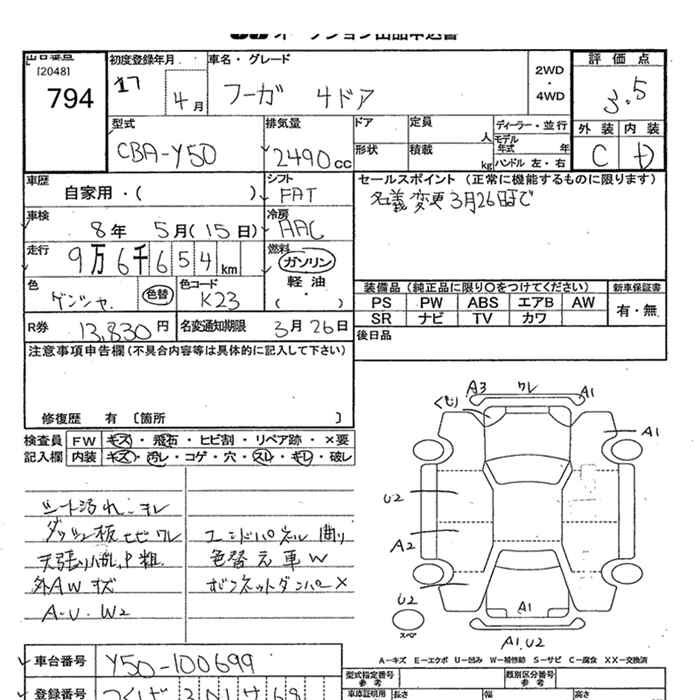 オークション出品申込書
出品番号
[2048]
794
初度登録年月
17 4 月
車名・グレード
フーガ 4ドア
2WD
・
4WD
評 価 点
3.5
外 装 内 装
C D
型式
CBA-Y50
排気量
2490 cc
ドア
形状
定員 人
積載 kg
ディーラー・並行
モデル年式 年
ハンドル 左・右
車歴
自家用・( )
シフト
FAT
セールスポイント (正常に機能するものに限ります)
名義変更3月26日まで
車検
8 年 5 月(15 日)
冷房
AAC
走行
9 万 6 千 6 5 4 km
燃料
ガソリン
軽 油
・( )
色
色替
色コード
K23
装備品 (純正品に限り〇をつけてください)
新車保証書
PS PW ABS エアB AW
SR ナビ TV カワ
有・無
R券
13,830 円
名変通知期限
3 月 26 日
後日品
注意事項申告欄(不具合内容等は具体的に記入して下さい)
修復歴 有 〔箇所 〕
検査員
記入欄
FW キズ・飛石・ヒビ割・リペア跡・×要
内装 キズ・汚レ・コゲ・穴・スレ・キレ・破レ
シート汚れ・スレ
ダッシュ板ヒビワレ
外AWキズ
A・U・W2
エンドパネル曲り
色替え車W
ボンネットダンパー×
A3 ワレ A1
A1
U2
A2
U2
スペア
A1
A1.U2
A-キズ E-エクボ U-凹み W-補修跡 S-サビ C-腐食 XX-交換済
車台番号
Y50-100699
登録番号
つくば 301
型式指定番号
参 考
類別区分番号
参 考
車庫証明用
長さ 幅 高さ